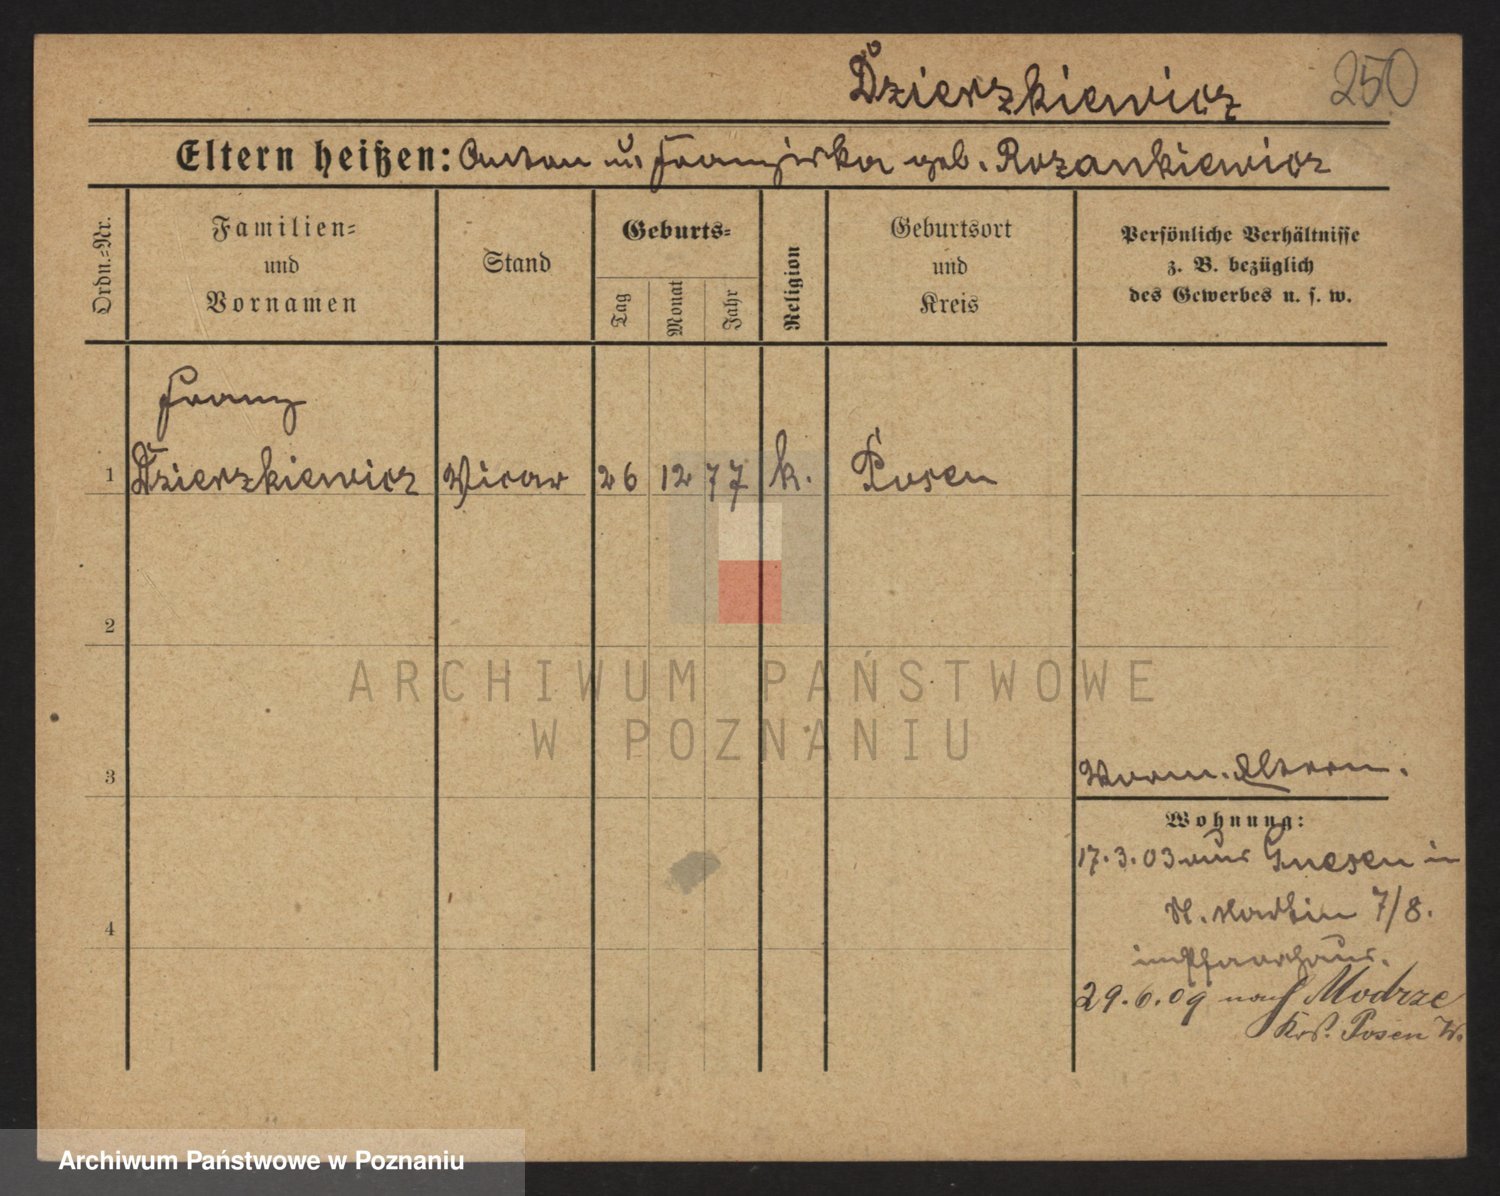 Dzierzkiewicz 250
Eltern heißen: Anton u. Franziska geb. Rozankiewicz
Ordn.-Nr.
Familien-
und
Vornamen
Stand
Geburts-
Tag
Monat
Jahr
Religion
Geburtsort
und
Kreis
Persönliche Verhältnisse
z. B. bezüglich
des Gewerbes u. s. w.
Franz
1 Dzierzkiewicz Vicar 26 12 77 k. Posen
2
ARCHIWUM PAŃSTWOWE
W POZNANIU
3 Eltern.
Wohnung:
17.3.03 aus Gnesen in
St. Martin 7/8.
im Pfarrhaus.
4
29.6.09 nach Modrze
Krs. Posen W.
Archiwum Państwowe w Poznaniu